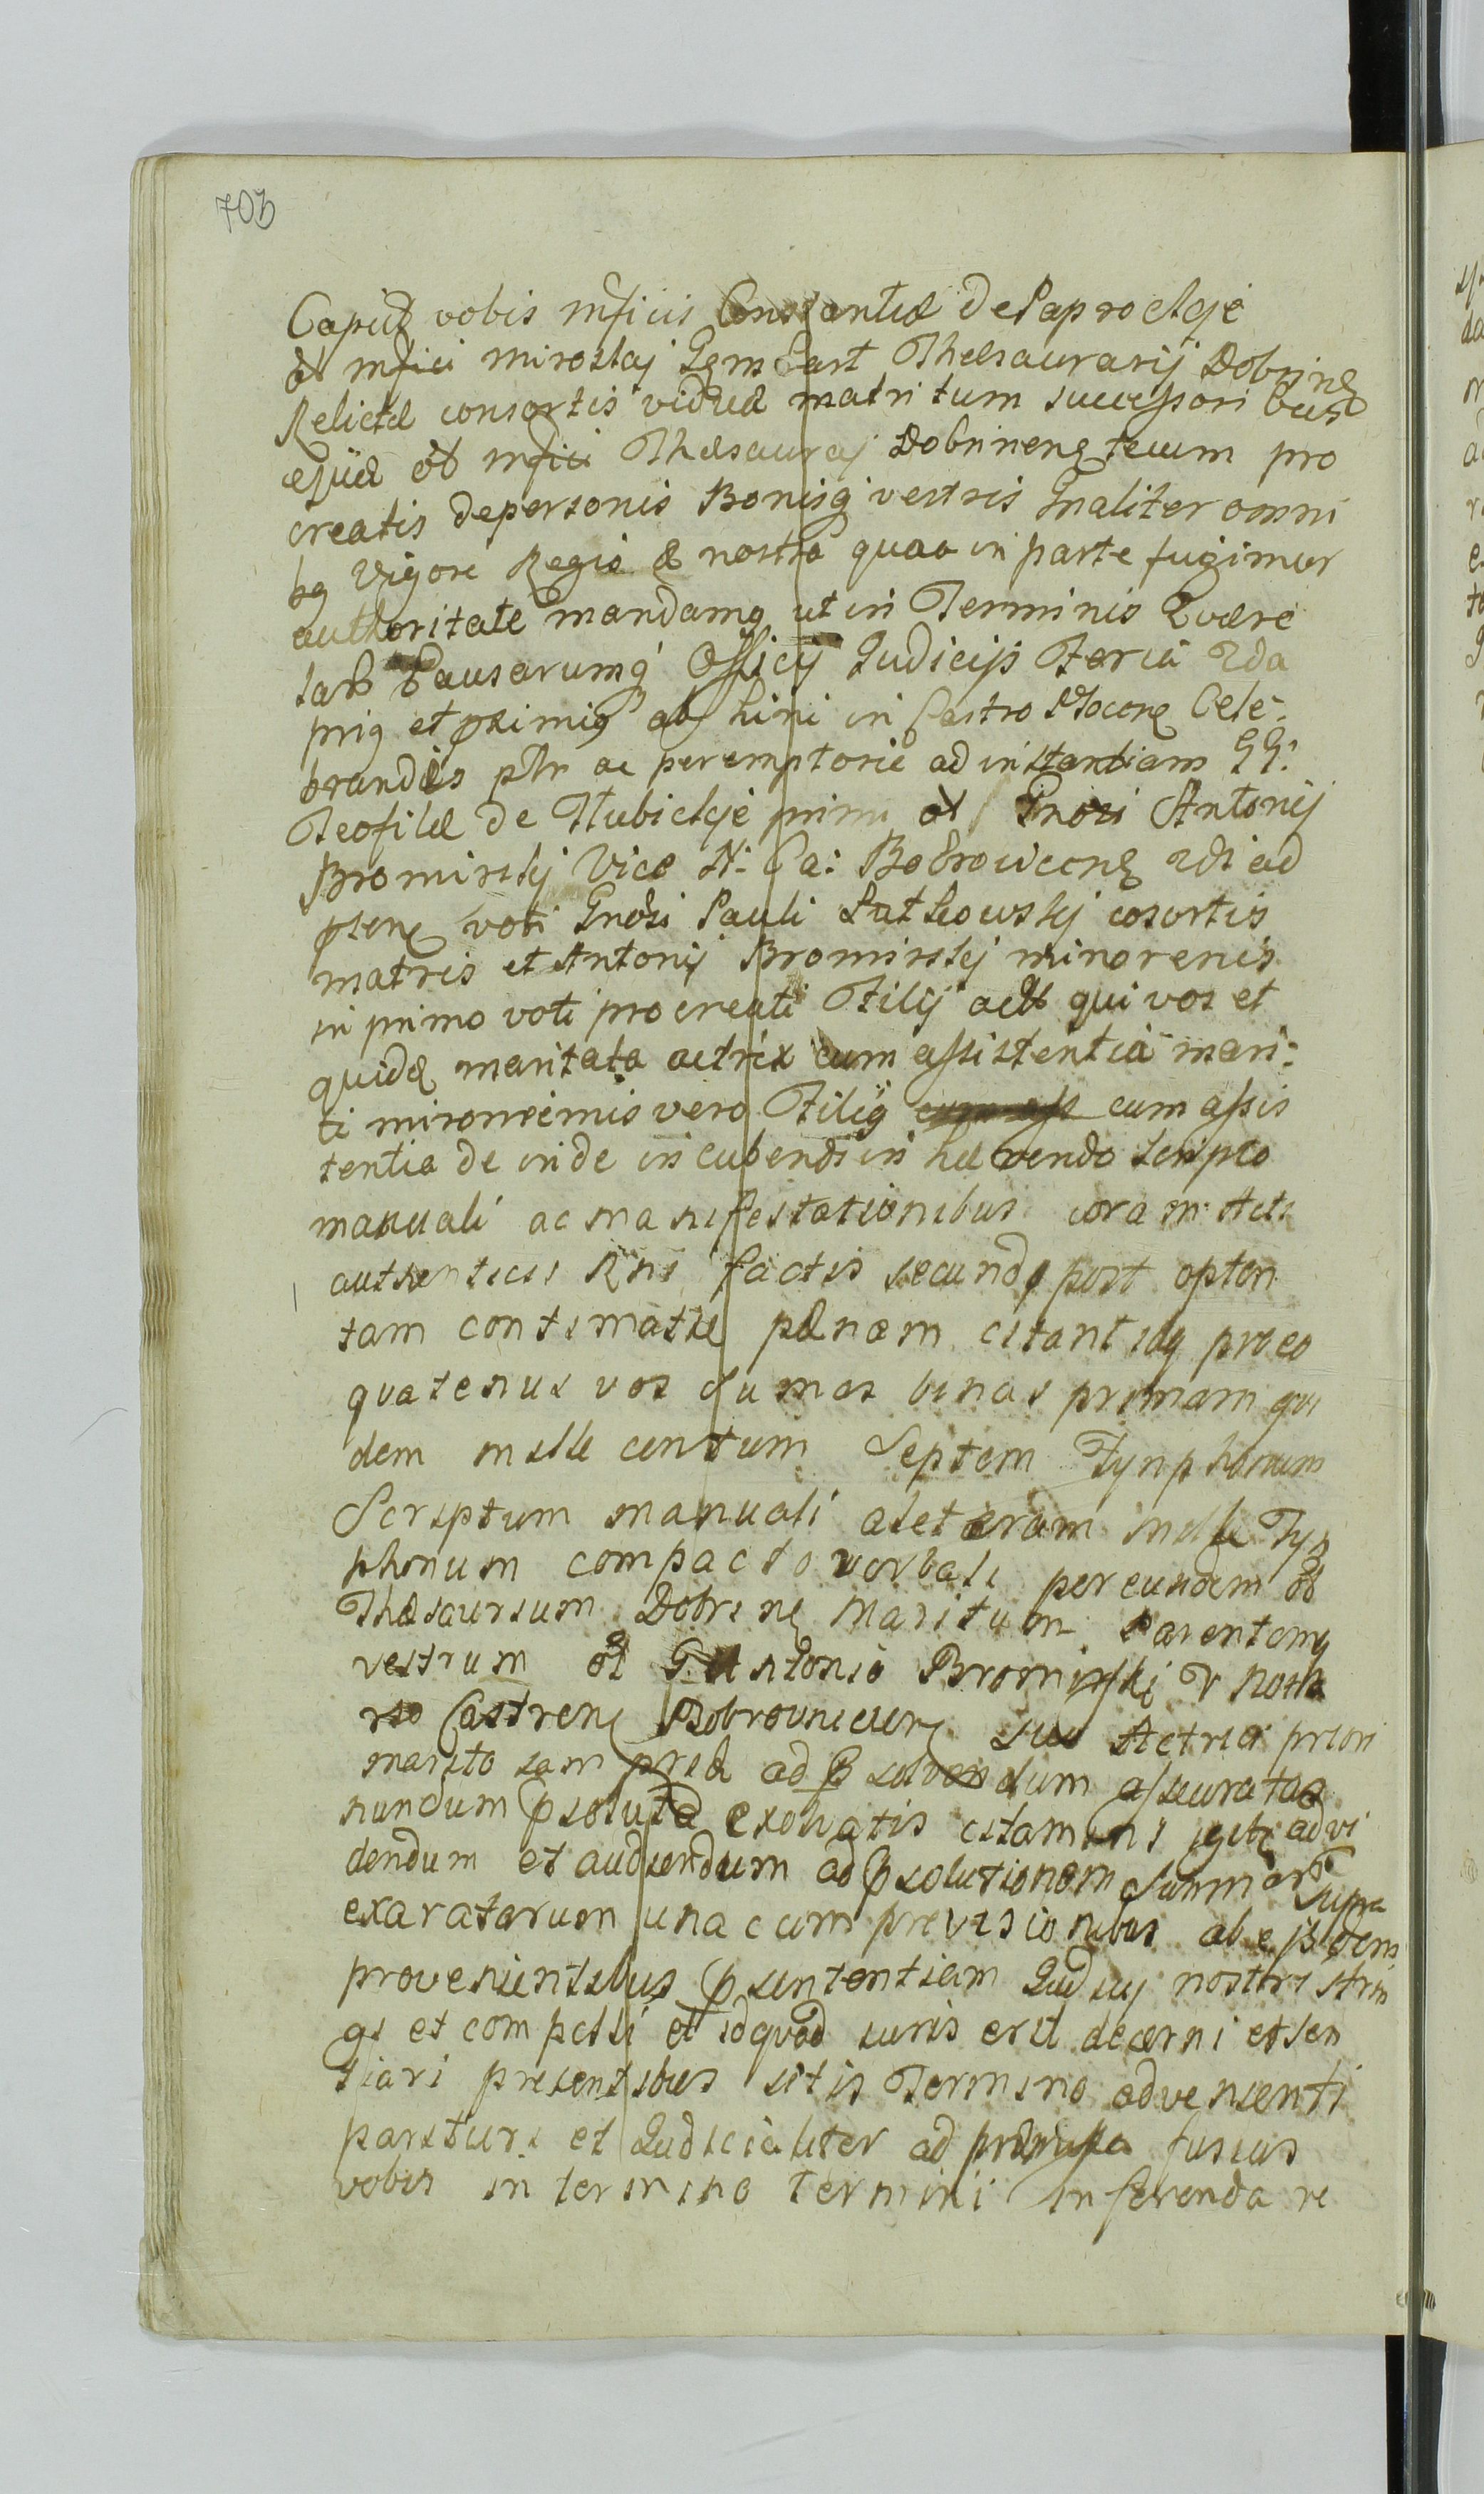 703
Capit vobis mficis Constantiæ de Paprockie
ol mfici miroslaj Gembart Thesaurarij Dobrinen
Relictæ consortis viduæ matri tum successoribus
ejus ol mfici Thesauraj Dobrinens tecum pro
creatis de personis Bonisq vestris Gnaliter omni
bq Vigore Regia & nostra quaa in parte fugimur
authoritate mandamq ut in Terminis Qvære
larb Causarumq Officij Judicijs Feria 2da
priq et pximiq abs hinc in Castro Plocens Cele-
brandis pltr ac peremptorie ad instantiam GG:
Teofilæ de Hubickie primi ol Gnosi Antonij
Bromirskij Vice N: Ca: Bobrowicens 2di ad
psens voti Gnosi Pauli Rutkowskij cosortis
matris et Antonij Bromirskij minorenis
in primo voti procreati Filij act qui vos et
quidq maritata actrix cum assistentia mari-
ti minorenis vero Filiq cum ass cum assis
tentia de inde incubendi in hærendo scripto
manuali ac manifestationibus coram Acti
authenticis Rni factis secundo post opten
tam contimatiæ pænam citant idq pro eo
quatenus vos sumas binas primam qui
dem mille centum Septem Tynphonum
Scriptum manuali aleteram mille Tyn
phonum compacto verbali per eundem ol
Thesaurium Dobrinens Maritum Parentemq
vestrum ol G Antonio Bromirski V Nota
rio Castrens Bobrownicens suo Actricis priori
marito iam pridæ ad psolvendum assecuratas
nundum psoluta exolvatis citamini igitr ad vi
dendum et audiendum ad psolutionem summar supra
exaratarum una cum previsionibus ab eisdem
provenientibus p sententiam Judicij nostri strin
gi et compelli et id quod iuris erit decerni et sen
tiari presentibus sitis Termino advenienti
parituri et Judicialiter ad præmissa fusius
vobis in termino termini inferenda re